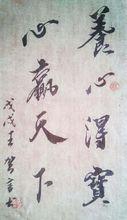 養心得寶
心贏天下
戊戌春